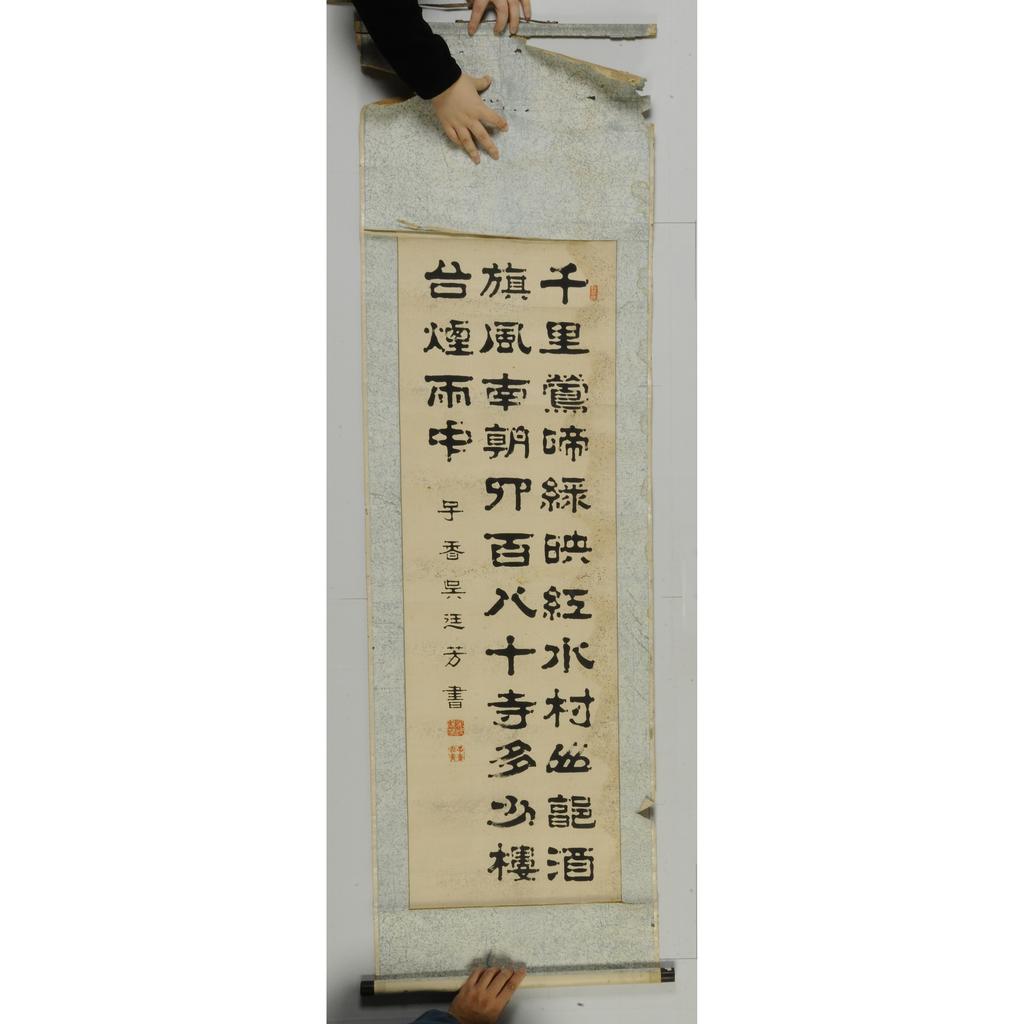 千里鶯啼綠映紅水村山郭酒
旗風南朝四百八十寺多少樓
台煙雨中
香吳廷芳書